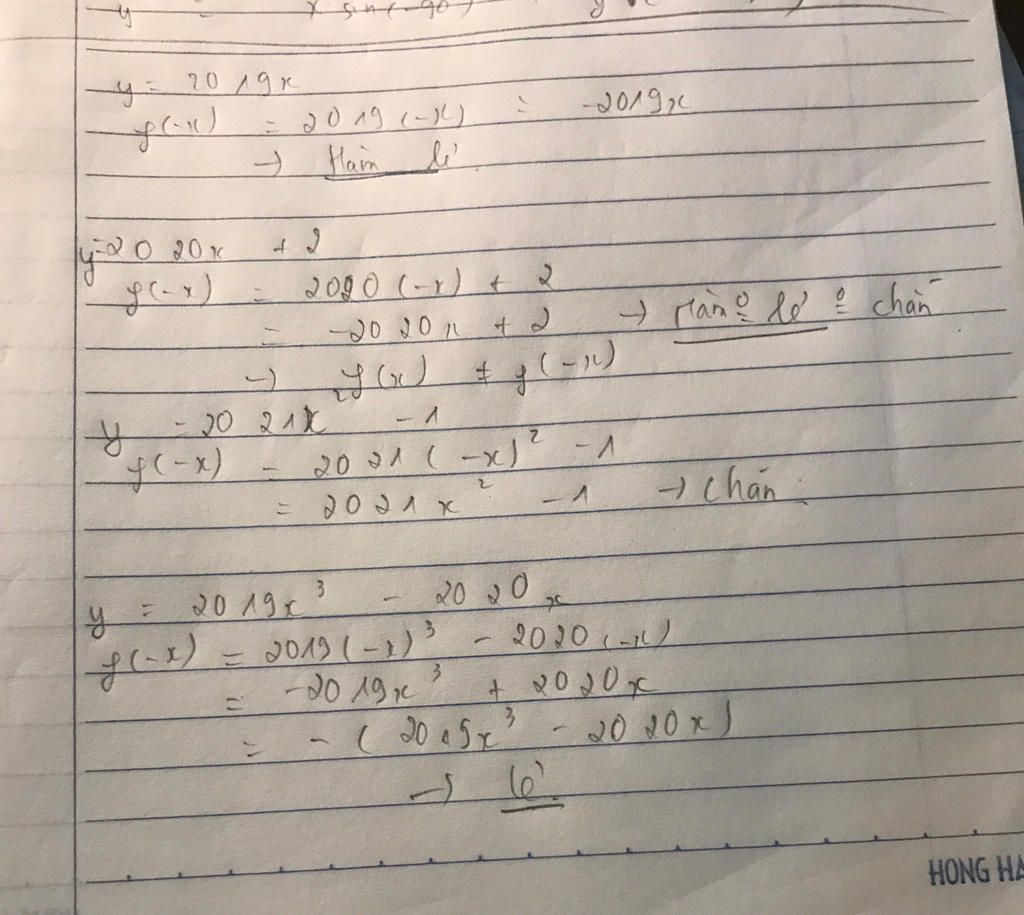 y = x sin(-90)
y = 2019x
f(-x) = 2019(-x) = -2019x
→ Hàm lẻ
y=2020x + 2
f(-x) = 2020(-x) + 2
= -2020x + 2 → Hàm o lẻ o chẵn
→ f(x) ≠ f(-x)
y = 2021x² - 1
f(-x) = 2021(-x)² - 1
= 2021x² - 1 → chẵn
y = 2019x³ - 2020x
f(-x) = 2019(-x)³ - 2020(-x)
= -2019x³ + 2020x
= -(2019x³ - 2020x)
→ lẻ
HONG HA